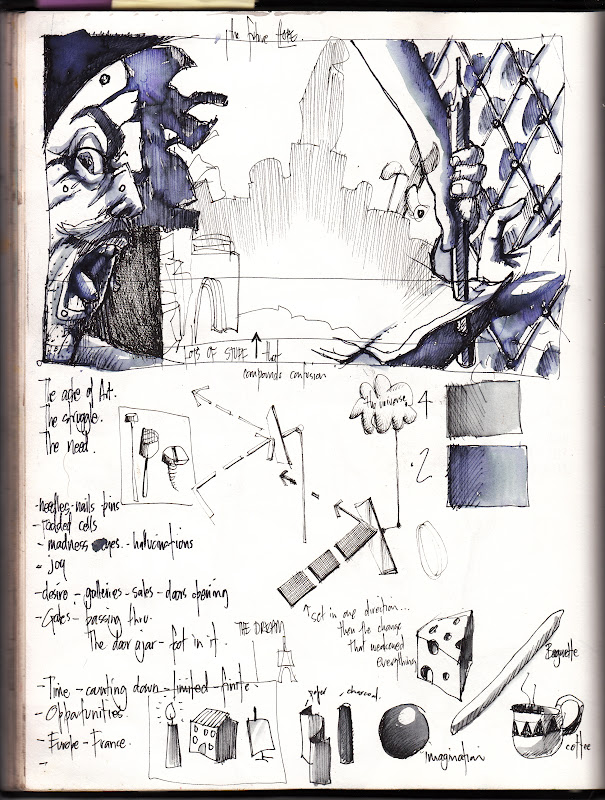 the future HOPE
LOTS OF STUFF that
compounds confusion
The ache of Art.
The struggle.
The need.
the universe
4
2
-needles-nails pins
-rodded cells
-madness eyes.-hallucinations
- joy
-desire-galleries-sales-doors opening
-Gates-passing thru.
The door ajar-foot in it.
set in one direction...
then the change
that weakened
everything
THE DREAM
-Time-counting down-limited-finite
-Opportunities.
-Europe-France.
-
paper
charcoal.
imagination
Baguette
coffee